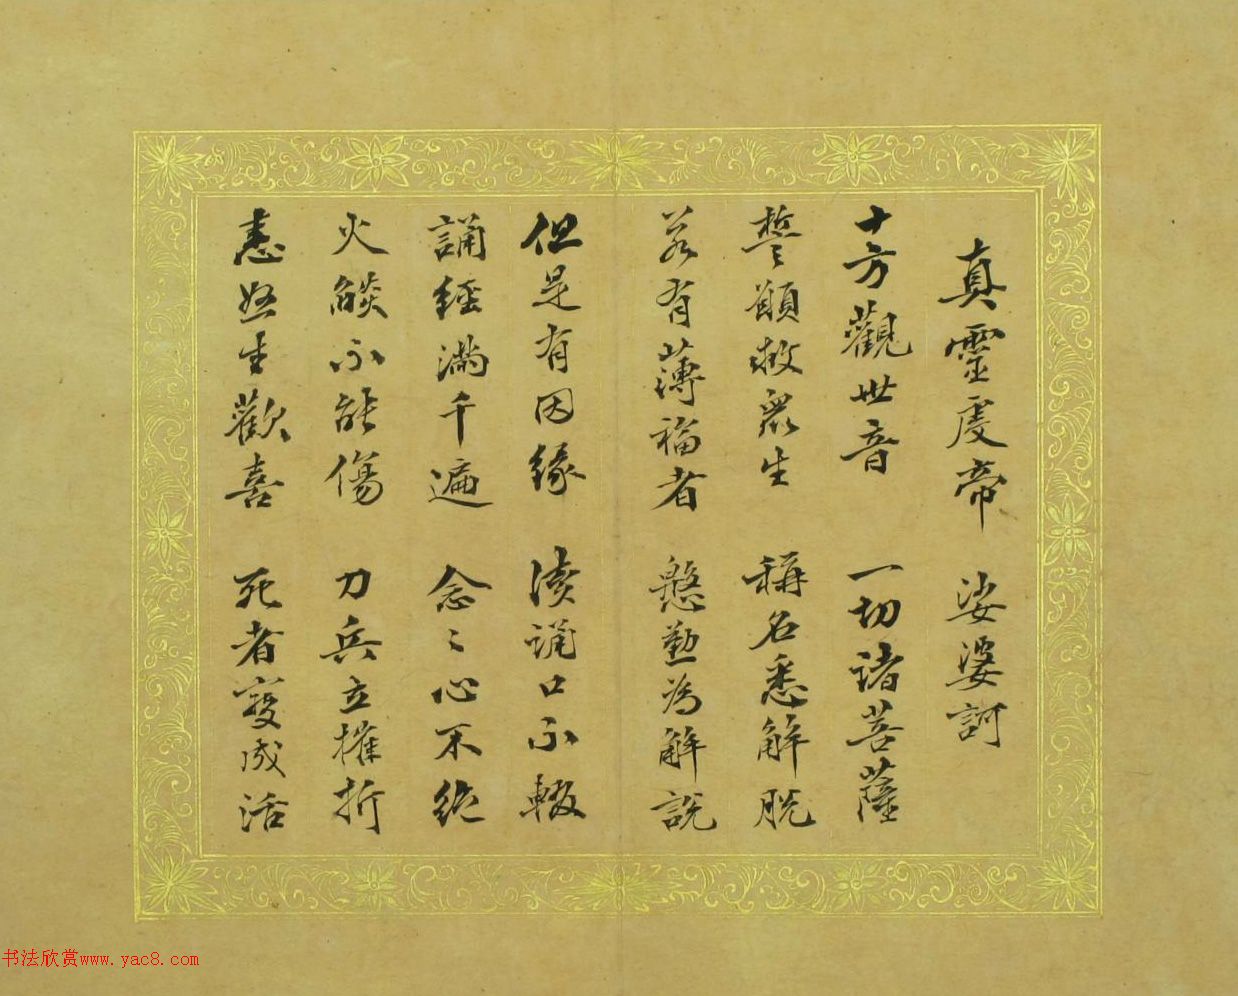 真靈虔帝 娑婆訶
十方觀世音 一切諸菩薩
誓願救眾生 稱名悉解脫
若有薄福者 慇懃為解說
但是有因緣 讀誦口不輟
誦經滿千遍 念〻心不絕
火燄不能傷 刀兵立摧折
恚怒生歡喜 死者變成活
书法欣赏www.yac8.com